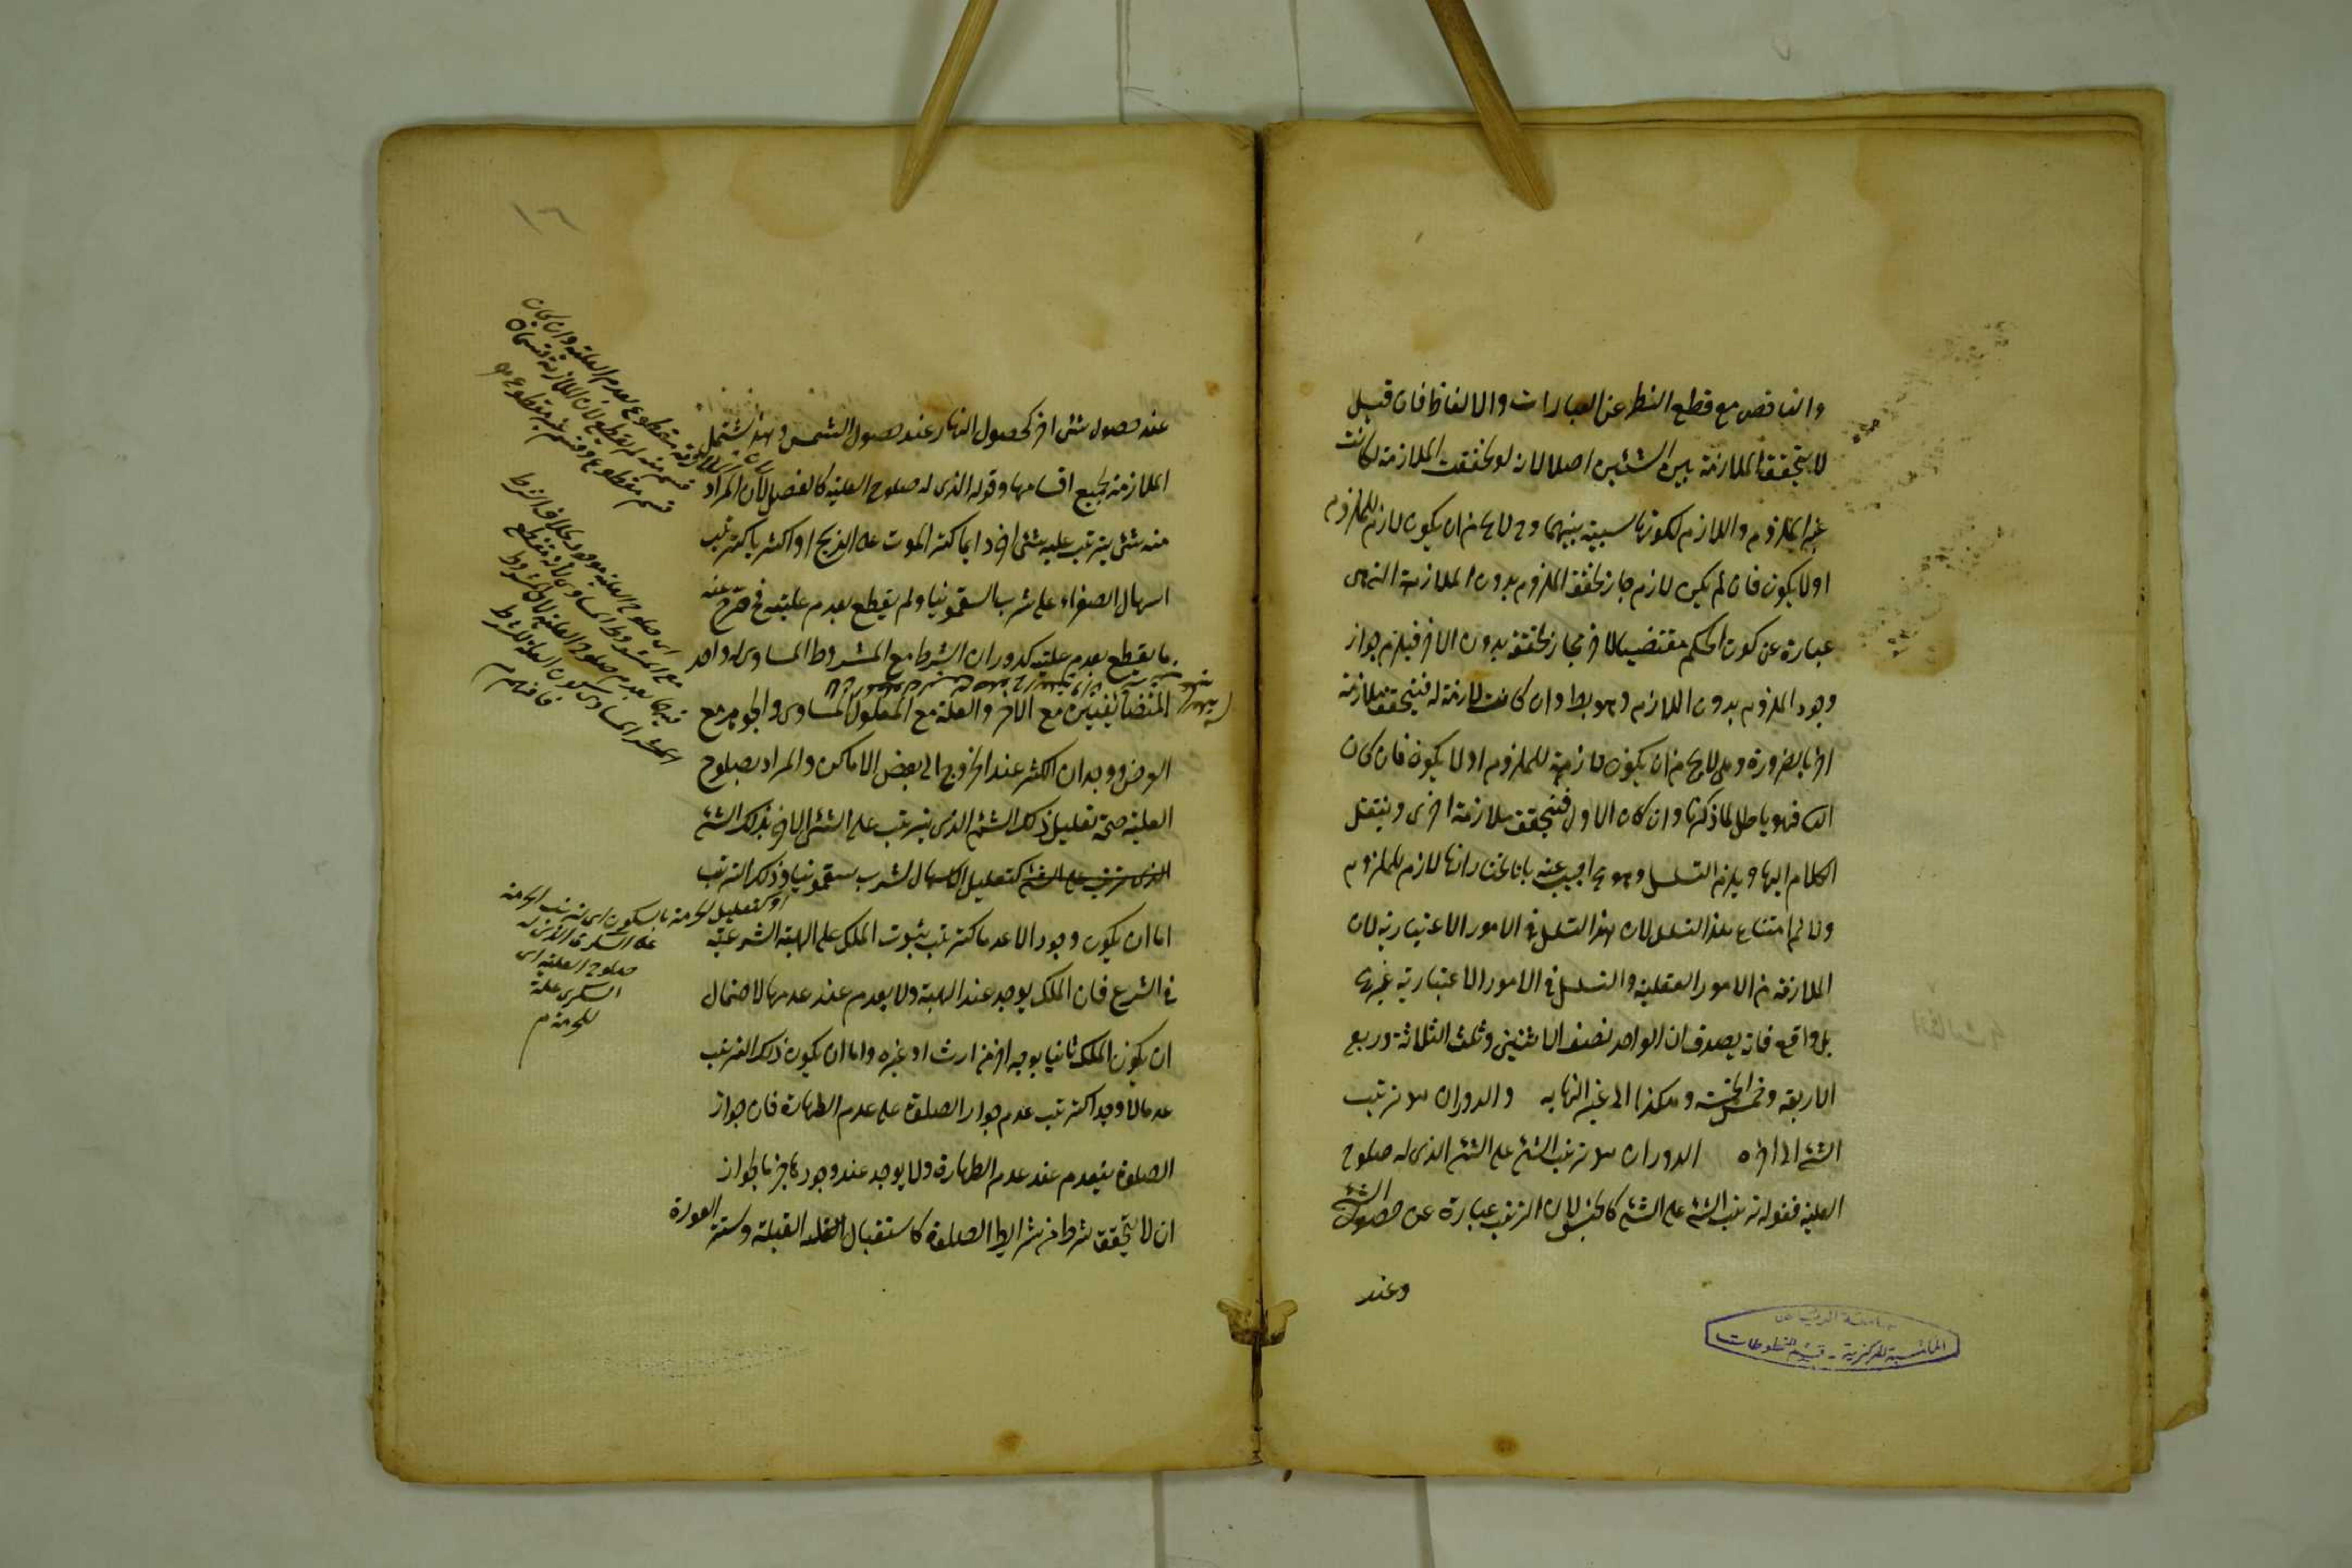 والتناقض مع قطع النظر عن العبارات والالفاظ فان قيل
لا يتحقق الملازمة بين الشيئين اصلا لانه لو تحققت الملازمة لكانت
غير الملزوم واللازم لكونها نسبية بينهما وح لا يخ من ان يكون لازم للملزوم
او لا يكون فان لم يكن لازم جاز تحقق الملزوم بدون الملازمة التي هى
عبارة عن كون الحكم مقتضيا لاخر فجاز تحققه بدون الاخر فيلزم جواز
وجود الملزوم بدون اللازم وهو بط وان كانت لازمة له فيتحقق ملازمة
اخرى بالضرورة وهى لا يخ من ان يكون لازمة للملزوم او لا يكون فان كان
الثانى فهو باطل لما ذكرنا وان كان الاول فيتحقق ملازمة اخرى وينتقل
الكلام اليها ويلزم التسلسل وهو مح اجيب عنه بانا نختار انها لازم للملزوم
ولا نم امتناع هذا التسلسل لان هذا التسلسل فى الامور الاعتبارية لان
الملازمة من الامور العقلية والتسلسل فى الامور الاعتبارية غير مح
بل واقع فانه يصدق ان الواحد نصف الاثنين وثلث الثلاثة وربع
الاربعة وخمس الخمسة وهكذا الى غير النهاية والدوران هو ترتب
الشئ الى اخره الدوران هو ترتب الشئ على الشئ الذى له صلوح
العلية فقوله ترتب الشئ على الشئ كالجنس لان الترتب عبارة عن حصول الشئ
وعند
جامعة الرياض
المكتبة المركزية - قسم المخطوطات
١٦
عند حصول شئ اخر كحصول النهار عند حصول الشمس وهذا يشتمل
الملازمة بجميع اقسامها وقوله الذى له صلوح العلية كالفصل لان المراد
منه شئ يترتب عليه شئ اخر دائما كترتب الموت على الذبح او اكثريا كترتب
اسهال الصفراء على شرب السقمونيا ولم يقطع بعدم عليته فخرج عنه
ما يقطع بعدم عليته كدوران الشرط مع المشروط المساوى له واحد
المتضائفين مع الاخر والعلة مع المعلول المساوى والجوهر مع
العرض ووجدان الكثر عند الخروج الى بعض الاماكن والمراد بصلوح
العلية صحة تعليل ذلك الشئ الذى يترتب على الشئ الاخر بذلك الشئ
الذى ترتب على الشئ كتعليل الاسهال لشرب سقمونيا وذلك الترتب
اما ان يكون وجودا لا عدما كترتب ثبوت الملك على الهبة الشرعية
فى الشرع فان الملك يوجد عند الهبة ولا يعدم عند عدمها لاحتمال
ان يكون الملك ثانيا بوجه اخر من ارث او غيره واما ان يكون ذلك الترتب
عدما لا وجودا كترتب عدم جواز الصلوة على عدم الطهارة فان جواز
الصلوة ينعدم عند عدم الطهارة ولا يوجد عند وجودها جزما لجواز
ان لا يتحقق شرط من شرايط الصلوة كاستقبال القبلة وستر العورة
او كتعليل الحرمة بالسكر اى ترتب الحرمة
على السكر الذى له
صلوح العلية اى
السكر علة
للحرمة م